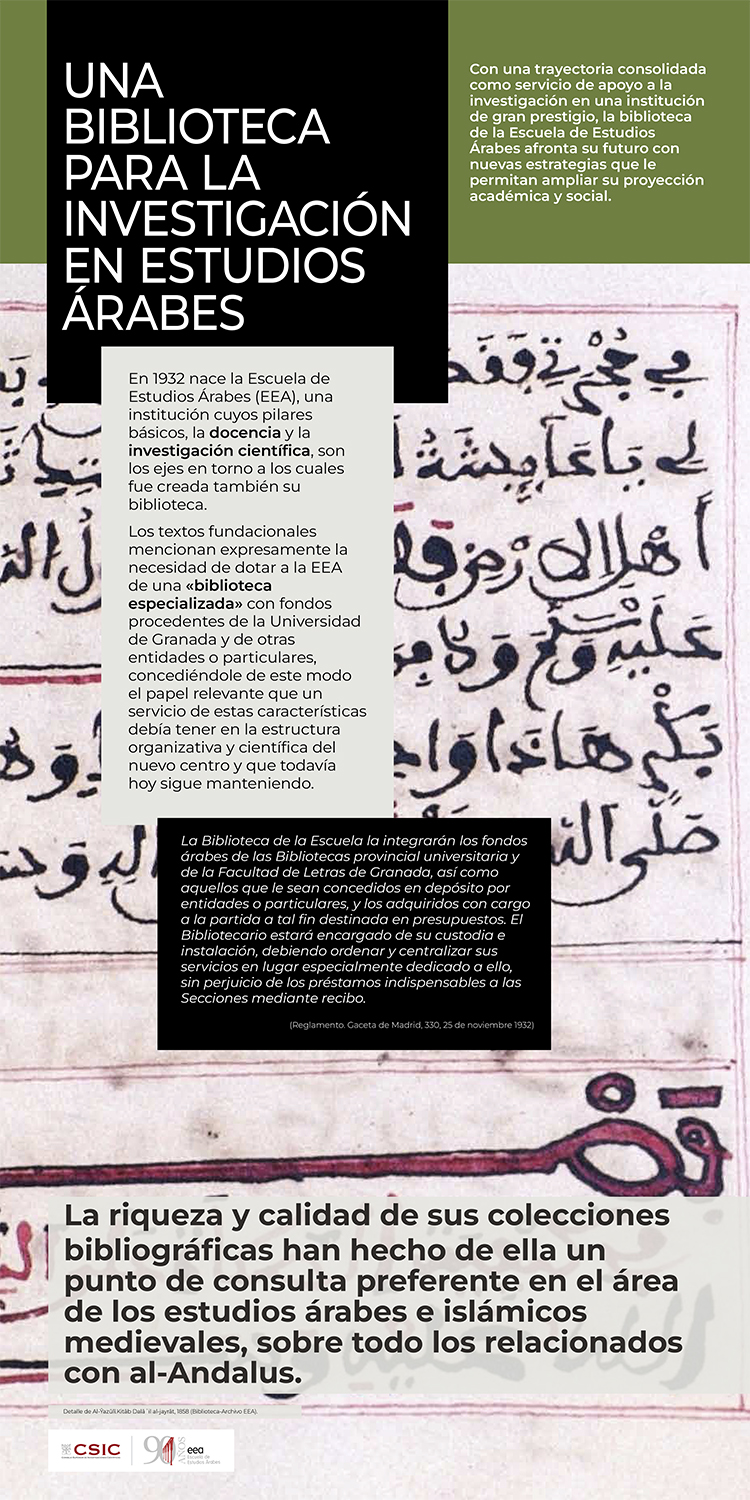 UNA
BIBLIOTECA
PARA LA
INVESTIGACIÓN
EN ESTUDIOS
ÁRABES
Con una trayectoria consolidada
como servicio de apoyo a la
investigación en una institución
de gran prestigio, la biblioteca
de la Escuela de Estudios
Árabes afronta su futuro con
nuevas estrategias que le
permitan ampliar su proyección
académica y social.
En 1932 nace la Escuela de
Estudios Árabes (EEA), una
institución cuyos pilares
básicos, la docencia y la
investigación científica, son
los ejes en torno a los cuales
fue creada también su
biblioteca.
Los textos fundacionales
mencionan expresamente la
necesidad de dotar a la EEA
de una «biblioteca
especializada» con fondos
procedentes de la Universidad
de Granada y de otras
entidades o particulares,
concediéndole de este modo
el papel relevante que un
servicio de estas características
debía tener en la estructura
organizativa y científica del
nuevo centro y que todavía
hoy sigue manteniendo.
في
عليه وسلم
صلى
La Biblioteca de la Escuela la integrarán los fondos
árabes de las Bibliotecas provincial universitaria y
de la Facultad de Letras de Granada, así como
aquellos que le sean concedidos en depósito por
entidades o particulares, y los adquiridos con cargo
a la partida a tal fin destinada en presupuestos. El
Bibliotecario estará encargado de su custodia e
instalación, debiendo ordenar y centralizar sus
servicios en lugar especialmente dedicado a ello,
sin perjuicio de los préstamos indispensables a las
Secciones mediante recibo.
(Reglamento. Gaceta de Madrid, 330, 25 de noviembre 1932)
La riqueza y calidad de sus colecciones
bibliográficas han hecho de ella un
punto de consulta preferente en el área
de los estudios árabes e islámicos
medievales, sobre todo los relacionados
con al-Andalus.
Detalle de Al-Ŷazūlī.Kitāb Dalā´il al-jayrāt, 1858 (Biblioteca-Archivo EEA).
CSIC
90 AÑOS
eea
Escuela de
Estudios Árabes